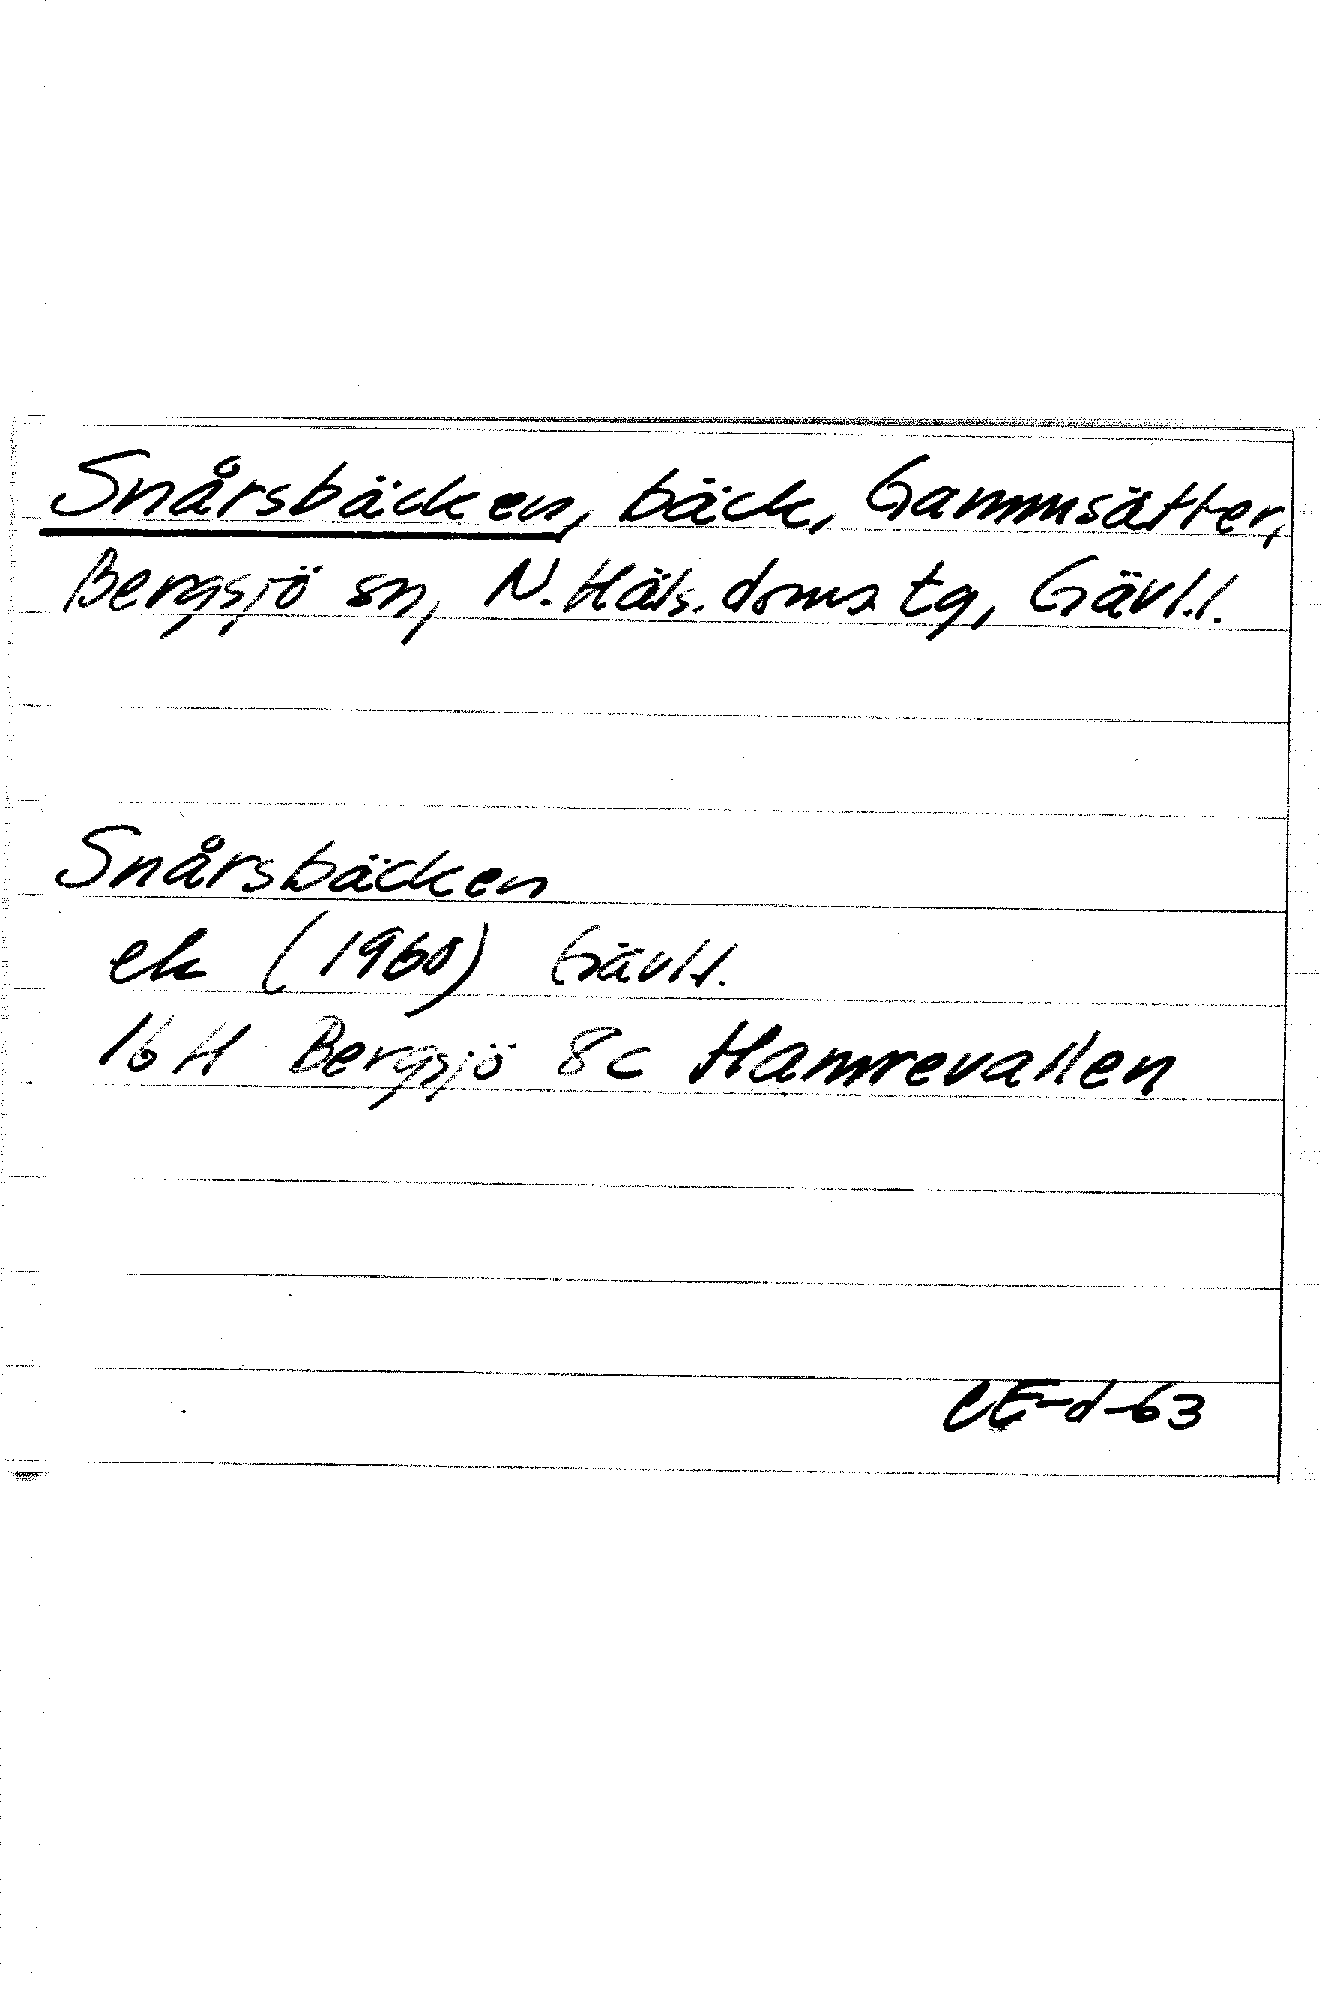 Snårsbäcken, bäck, Gammsätter,
Bergsjö sn, N. Häls. doms. tg, Gävl.l.
Snårsbäcken
ek (1960) Gävl.l.
16 H Bergsjö 8c Hamrevallen
CE-d-63